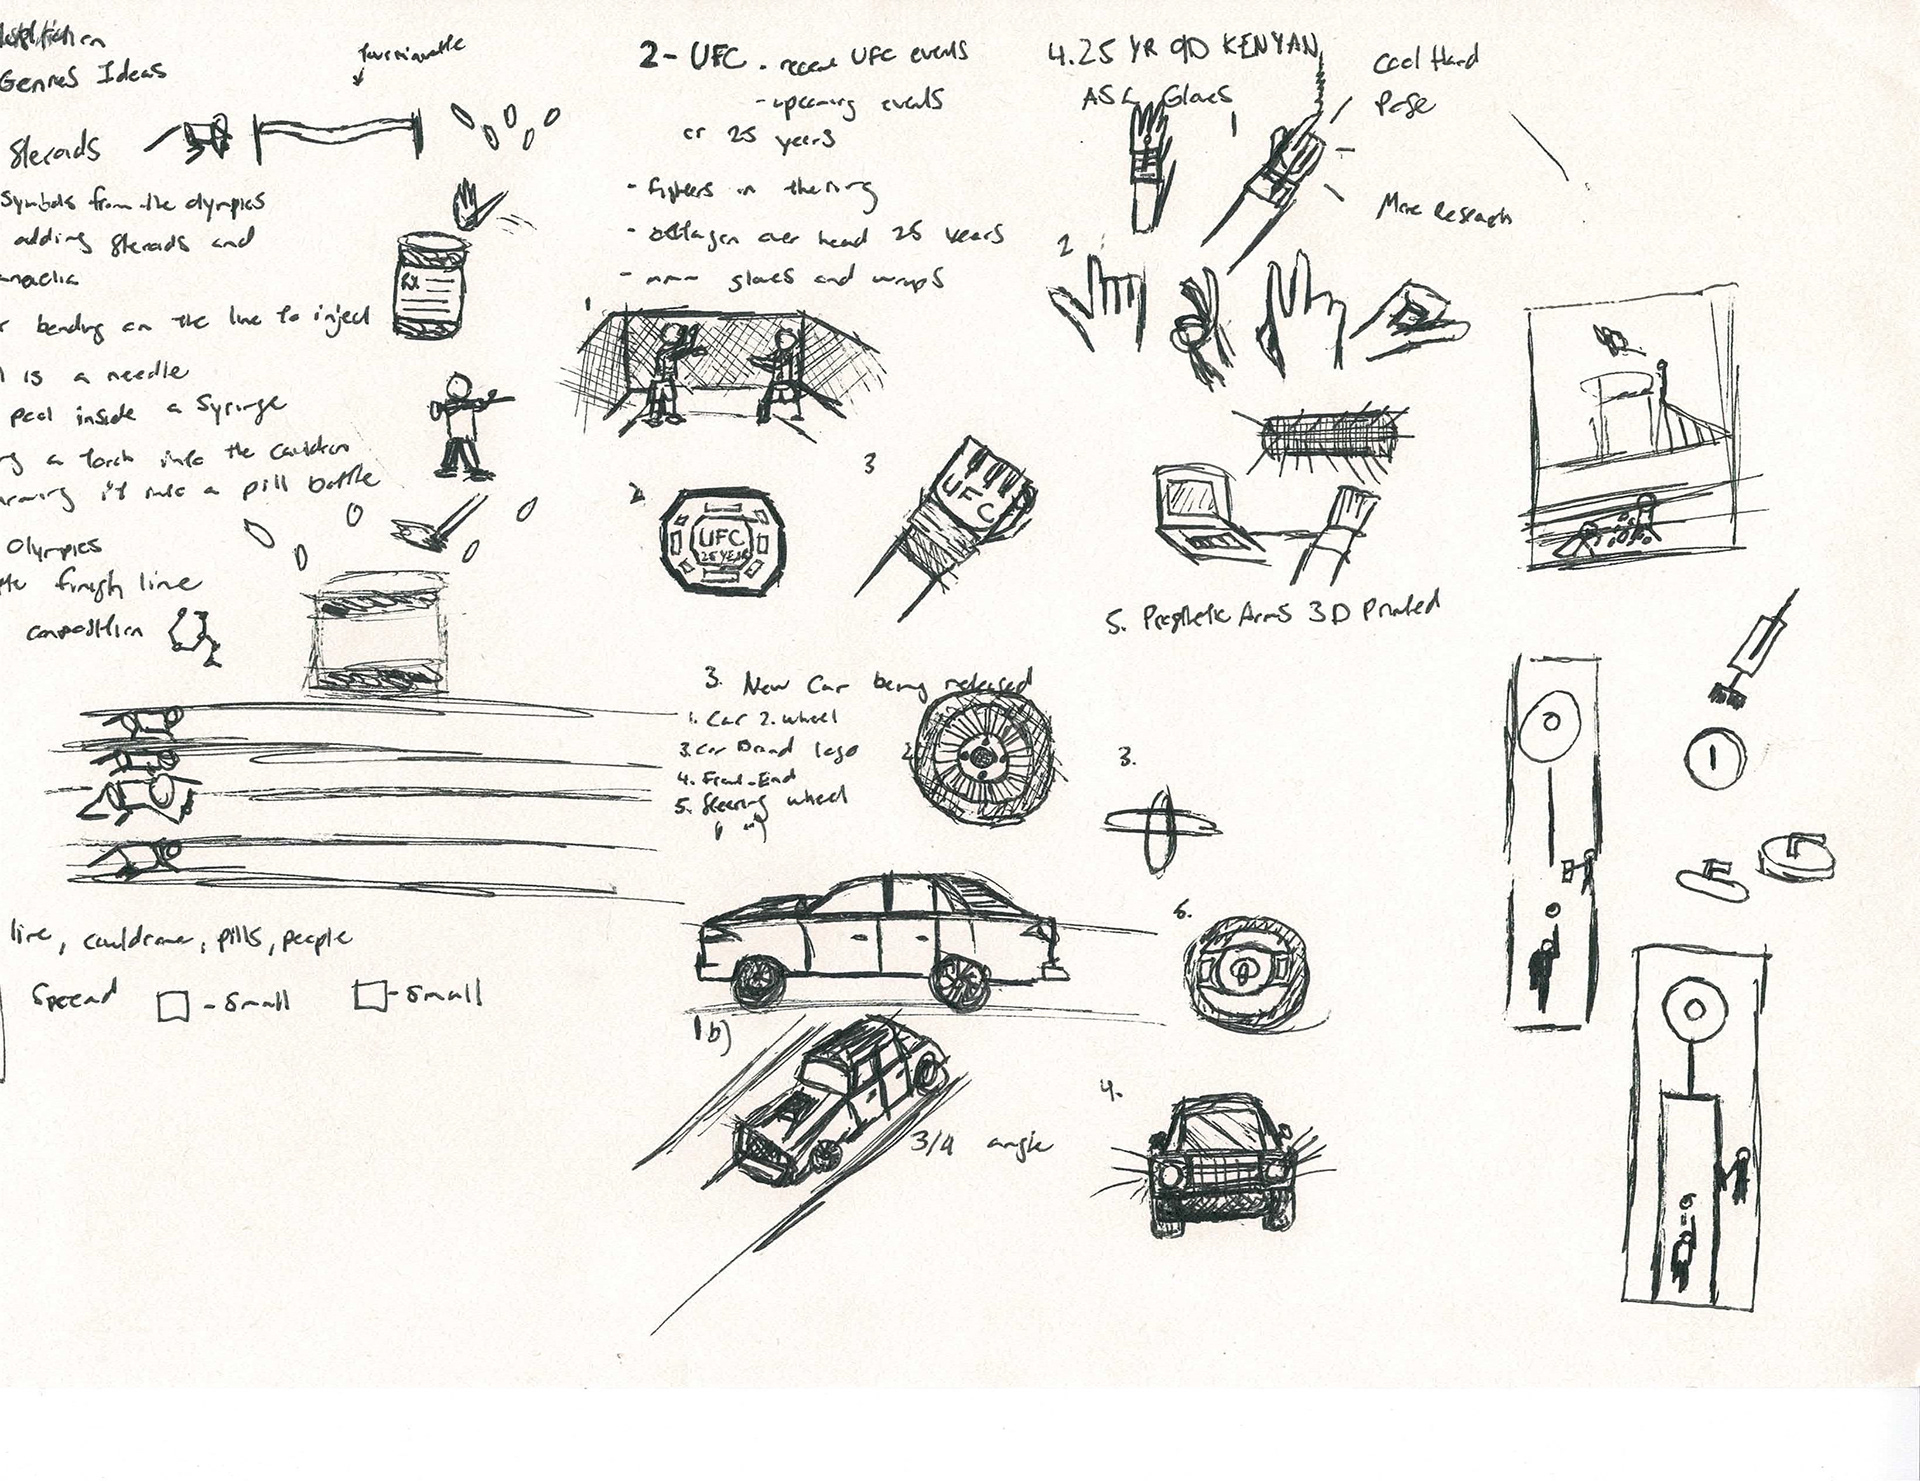 Genres Ideas
Steroids
Symbols from the olympics
adding steroids and
bending on the line to inject
is a needle
pool inside a Syringe
a torch into the cauldron
it into a pill bottle
Olympics
finish line
composition
line, cauldrone, pills, people
Spread
- Small
- Small
RX
2- UFC - recent UFC events
- upcoming events
or 25 years
- fighters in the ring
- octagon over head 25 years
- mma gloves and wraps
1
2
UFC
25 YEARS
3
UFC
3. New Car being released
1. Car 2. wheel
3. Car Brand logo
4. Front-End
5. Steering wheel
2
3.
5.
1b)
3/4 angle
4.
4. 25 YR OLD KENYAN
ASL Gloves
1
Cool Hand
Pose
More Research
2
5. Prosthetic Arms 3D Printed